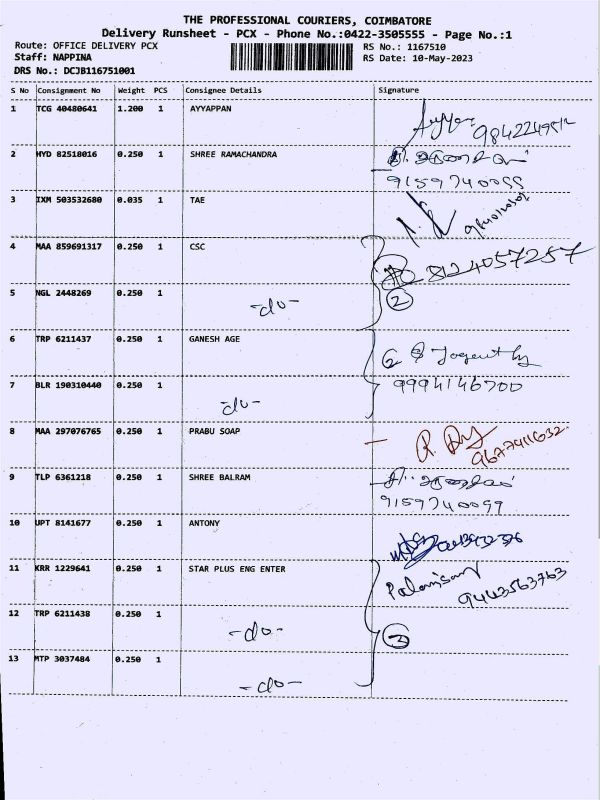 THE PROFESSIONAL COURIERS, COIMBATORE
Delivery Runsheet - PCX - Phone No.:0422-3505555 - Page No.:1
Route: OFFICE DELIVERY PCX RS No.: 1167510
Staff: NAPPINA RS Date: 10-May-2023
DRS No.: DCJB116751001
S No Consignment No Weight PCS Consignee Details Signature
1 TCG 40480641 1.200 1 AYYAPPAN
2 HYD 82518016 0.250 1 SHREE RAMACHANDRA
9159740099
3 IXM 503532680 0.035 1 TAE
4 MAA 859691317 0.250 1 CSC
8124057257
5 NGL 2448269 0.250 1 -do- 2
6 TRP 6211437 0.250 1 GANESH AGE
7 BLR 190310440 0.250 1 -do- 9994146700
8 MAA 297076765 0.250 1 PRABU SOAP
9677411632
9 TLP 6361218 0.250 1 SHREE BALRAM
9159740099
10 UPT 8141677 0.250 1 ANTONY
11 KRR 1229641 0.250 1 STAR PLUS ENG ENTER
Palanisamy 9443563763
12 TRP 6211438 0.250 1 -do- 3
13 MTP 3037484 0.250 1 -do-